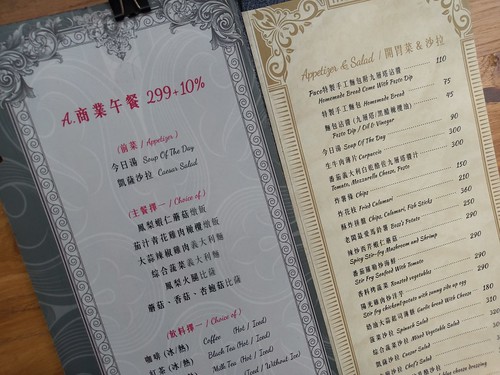 A.商業午餐 299+10%
(前菜 / Appetizer)
今日湯 Soup Of The Day
凱薩沙拉 Caesar Salad
(主餐擇一 / Choice of)
鳳梨蝦仁蘑菇燉飯
茄汁青花雞肉橄欖燉飯
大蒜辣椒雞肉義大利麵
綜合蔬菜義大利麵
鳳梨火腿比薩
蘑菇、香菇、杏鮑菇比薩
(飲料擇一 / Choice of)
咖啡 (冰/熱) Coffee (Hot / Iced)
紅茶 (冰/熱) Black Tea (Hot / Iced)
Milk Tea (Hot / Iced)
Appetizer & Salad / 開胃菜 & 沙拉
Paco特製手工麵包附九層塔沾醬 110
Homemade Bread Come With Pesto Dip
特製手工麵包 Homemade Bread 75
麵包沾醬 (九層塔/黑醋橄欖油) 45
Pesto Dip / Oil & Vinegar
今日湯 Soup Of The Day 90
生牛肉薄片 Carpaccio 300
番茄義大利白乾酪佐九層塔醬汁
Tomato, Mozzarella Cheese, Pesto 210
炸薯條 Chips 150
炸花枝 Fried Calamari 260
酥炸拼盤 Chips, Calamari, Fish Sticks 250
老闆最愛馬鈴薯 Boss's Potato 290
辣炒西芹蝦仁蘑菇
Spicy Stir-fry Mushroom and Shrimp 290
番茄羅勒炒海鮮
Stir Fry Seafood With Tomato 290
香料烤蔬菜 Roasted vegetables
陽光雞肉炒洋芋
Stir fry chicken & potato with sunny side up egg
菠菜沙拉 Spinach Salad
綜合蔬菜沙拉 Mixed Vegetable Salad
凱薩沙拉 Caesar Salad
Chef's Salad